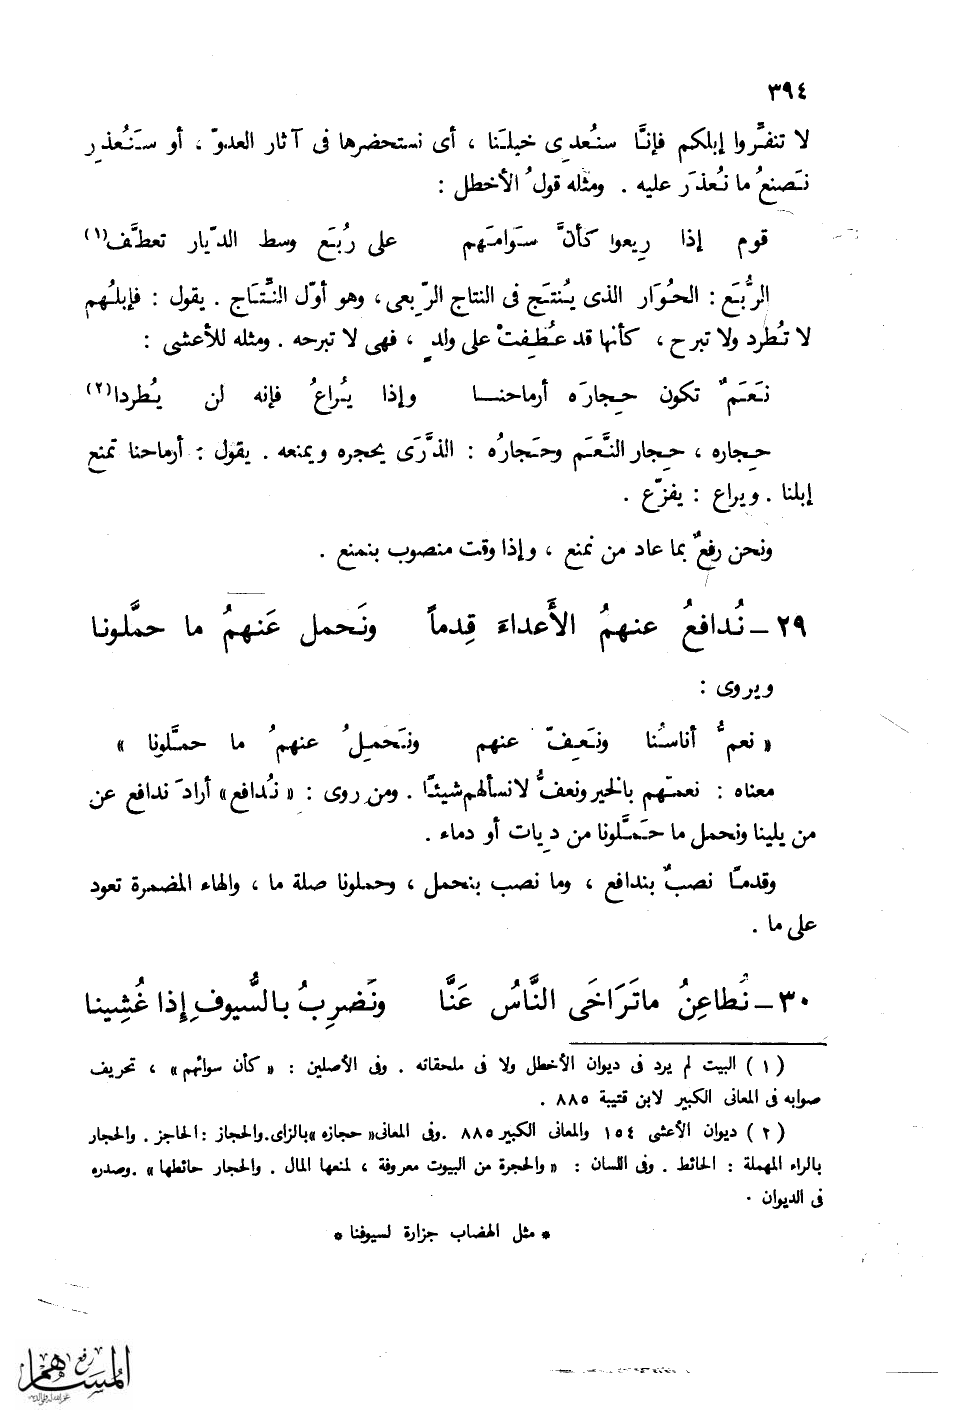 ٣٩٤
لا تنفِّروا إبلكم فإنَّا سنُعدِى خيلَنا ، أى نستحضرها فى آثار العدوّ ، أو سنَعُذِر
نَصنعُ ما نُعذَر عليه . ومثله قولُ الأخطل :
قوم إذا رِيعوا كأنَّ سَوَامَهم على رُبَعٍ وسط الدّيار تعطَّف(١)
الرُّبَع : الحُوَار الذى يُنتَج فى النتاج الرّبعى، وهو أوّل النِّتَاج . يقول : فإبلُهم
لا تُطرد ولا تبرح ، كأنها قد عُطِفتْ على ولدٍ ، فهى لا تبرحه . ومثله للأعشى :
نَعَمٌ تكون حِجارَه أرماحنـا وإذا يُراعُ فإنه لن يُطردا(٢)
حِجاره ، حِجار النَّعَم وحَجارُه : الذَّرَى يحجره ويمنعه . يقول : أرماحنا تمنع
إبلنا . ويراع : يفزّع .
ونحن رفعٌ بما عاد من نمنع ، وإذا وقت منصوب بنمنع .
٢٩ – نُدافعُ عنهمُ الأَعداءَ قِدماً ونَحمل عَنهمُ ما حمَّلونا
ويروى :
« نعمُّ أناسَنا ونَعِفّ عنهم ونَحمِلُ عنهمُ ما حمَّلونا »
معناه : نعمّهم بالخير ونعفُّ لا نسألهم شيئًا . ومن روى : « نُدافع » أرادَ ندافع عن
من يلينا ونحمل ما حَمَّلونا من دِيات أو دماء .
وقدمًا نصبٌ بندافع ، وما نصب بنحمل ، وحملونا صلة ما ، والهاء المضمرة تعود
على ما .
٣٠ – نُطاعِنُ ماتَرَاخَى النَّاسُ عَنَّا ونَضرِبُ بالسُّيوفِ إِذا غُشِينا
( ١ ) البيت لم يرد فى ديوان الأخطل ولا فى ملحقاته . وفى الأصلين : « كأن سوائهم » ، تحريف
صوابه فى المعانى الكبير لابن قتيبة ٨٨٥ .
( ٢ ) ديوان الأعشى ١٥٤ والمعانى الكبير ٨٨٥ . وفى المعانى « حجازه » بالزاى. والحجاز : الحاجز . والحجار
بالراء المهملة : الحائط . وفى اللسان : « والحجرة من البيوت معروفة ، لمنعها المال . والحجار حائطها » . وصدره
فى الديوان .
* مثل الهضاب جزارة لسيوفنا *
رفع
المساهم